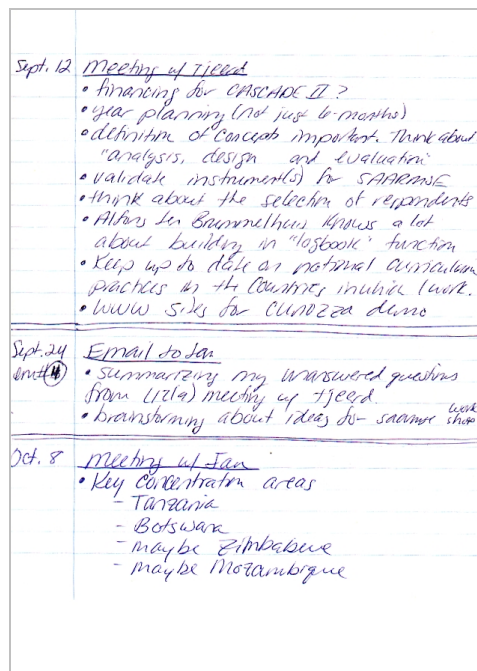 Sept. 12 Meeting w/ Tjeerd
• financing for CASCADE II?
• year planning (not just 6-months)
• definition of concepts important. Think about
"analysis, design and evaluation"
• validate instrument(s) for SAARMSE
• think about the selection of respondents
• Alfons ten Brummelhuis knows a lot
about building in "logbook" function
• Keep up to date on national curriculum
practices in the countries in which I work.
• WWW sites for CUNOZZA demo
Sept. 24 Email to Jan
• summarizing my unanswered questions
from (12/9) meeting w/ Tjeerd
• brainstorming about ideas for saarmse workshop
Oct. 8 Meeting w/ Jan
• Key concentration areas
- Tanzania
- Botswana
- maybe Zimbabwe
- maybe Mozambique